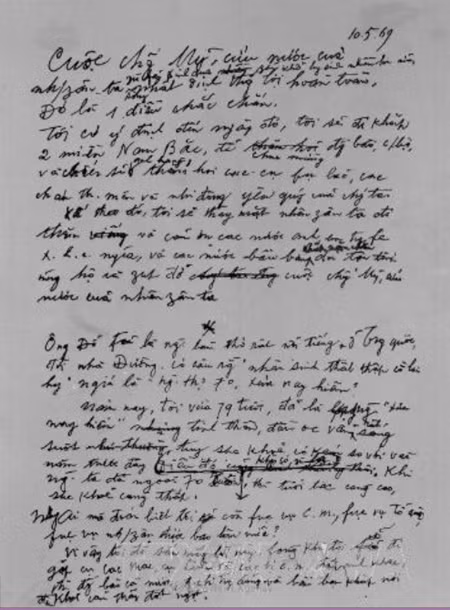 10.5.69
Cuộc chống Mỹ, cứu nước của
nh/zân ta fải kinh qua hy sinh nhiều hơn nữa,
song nhất định thắng lợi hoàn toàn.
Đó là 1 điều chắc chắn.
Tôi có ý định đến ngày đó, tôi sẽ đi khắp
2 miền Nam Bắc, để chúc mừng đ/bào, c/bộ,
và chiến sĩ anh hùng, thăm hỏi các cụ fụ lão, các
cháu th. niên và nhi đồng yêu quý của ch/ta.
Kế theo đó, tôi sẽ thay mặt nhân zân ta đi
thăm và cám ơn các nước anh em fe
x. h. c. nghĩa, và các nước bầu bạn đã tận tình
ủng hộ và zúp đỡ cuộc chống Mỹ, cứu
nước của nhân zân ta.
Ông Đỗ Fủ là ng. làm thơ rất nổi tiếng ở Tr/quốc,
đời nhà Đường. Có câu rằng "nhân sinh thất thập cổ lai
hy" nghĩa là "ng. thọ 70, xưa nay hiếm"
Năm nay, tôi vừa 79 tuổi, đã là "xưa
nay hiếm" tinh thần, đầu óc vẫn
suốt tuy sức khoẻ có kém so với vài
năm trước đây. Khi
ng. ta đã ngoài 70 xuân, thì tuổi tác càng cao,
sức khoẻ càng thấp.
Nhưng ai mà đoán biết tôi còn fục vụ C.M, fục vụ Tổ quốc,
fục vụ nh/zân được bao lâu nữa?
Vì vậy tôi để sẵn mấy lời này, fòng khi tôi sẽ đi
gặp cụ Các Mác, cụ Lênin và các vị c.m. đàn anh khác,
thì đ/bào cả nước, đ/chí trong đảng và bầu bạn khắp nơi
đều khỏi cảm thấy đột ngột.